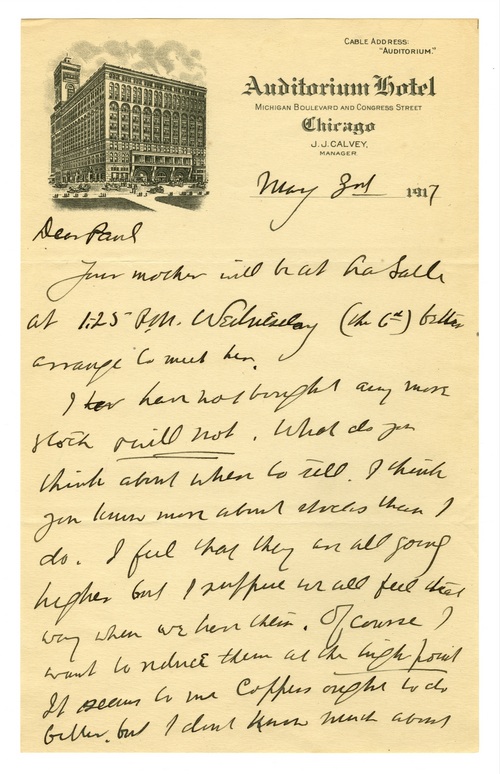 CABLE ADDRESS:
"AUDITORIUM."
Auditorium Hotel
MICHIGAN BOULEVARD AND CONGRESS STREET
Chicago
J. J. CALVEY,
MANAGER.
May 3rd 1917
Dear Paul
Your mother will be at La Salle
at 1:25 P.M. Wednesday (the 6th) better
arrange to meet her.
I hav have not bought any more
stock & will not. What do you
think about when to sell. I think
you know more about stocks than I
do. I feel that they are all going
higher but I suppose we all feel that
way when we have them. Of course I
want to reduce them at the high point
It seems to me Coppers ought to do
better, but I don't know much about